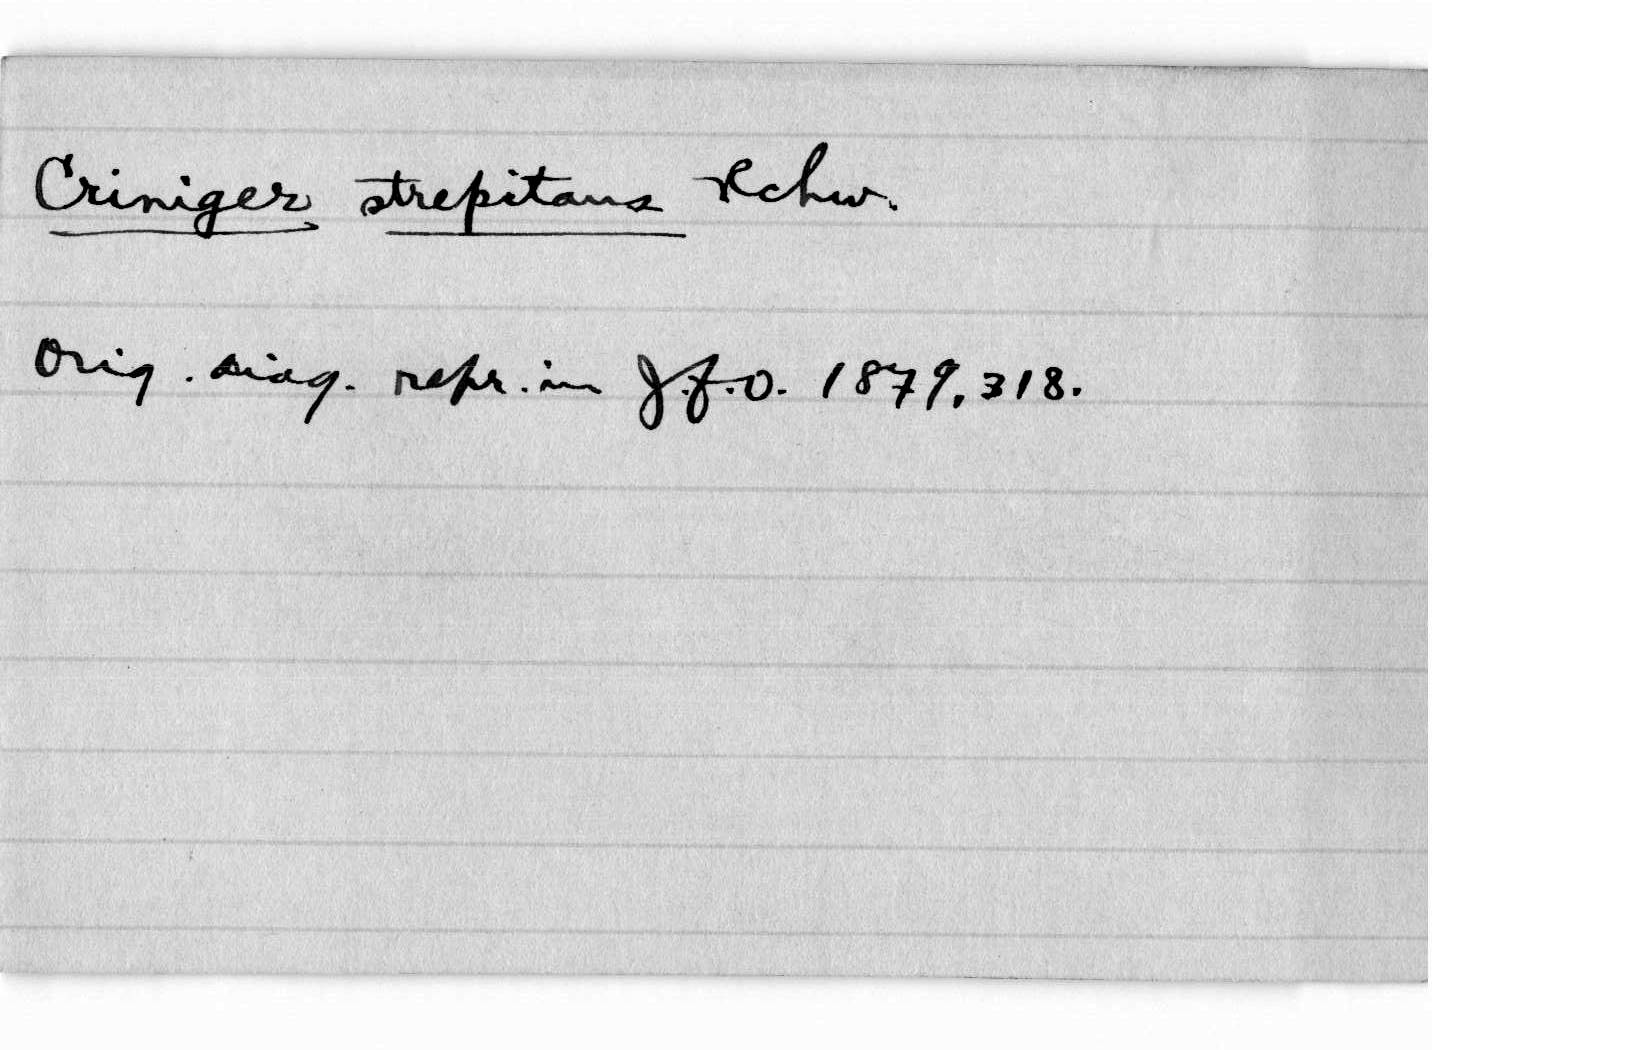 Criniger strepitans Rchw.
Orig. diag. repr. in J.f.O. 1879, 318.